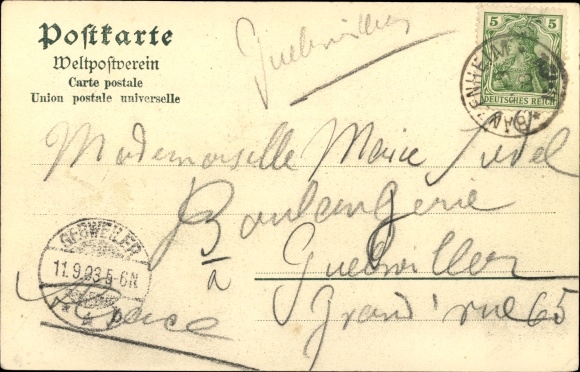 Postkarte
Weltpostverein
Carte postale
Union postale universelle
Guebwiller
5 5
DEUTSCHES REICH
Mademoiselle Marie
Boulangerie
à Guebwiller
Grand'rue 65
Alsace
GEBWEILER
11.9.03 5-6N